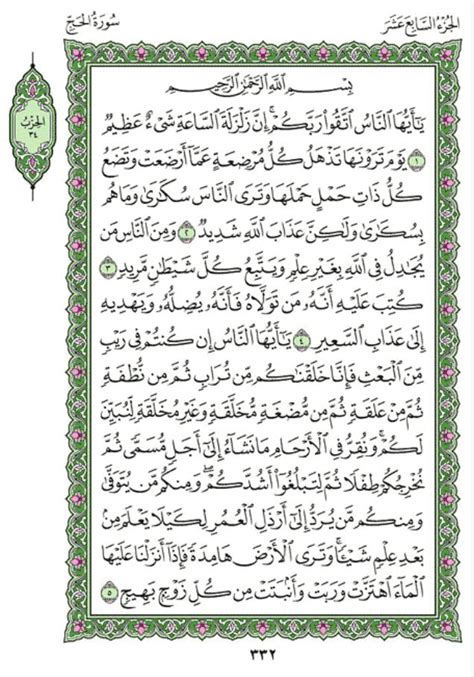 الجزء السابع عشر
سورة الحج
الحزب
٣٤
بِسْمِ ٱللَّهِ ٱلرَّحْمَٰنِ ٱلرَّحِيمِ
يَٰٓأَيُّهَا ٱلنَّاسُ ٱتَّقُوا۟ رَبَّكُمْ ۚ إِنَّ زَلْزَلَةَ ٱلسَّاعَةِ شَىْءٌ عَظِيمٌ
١ يَوْمَ تَرَوْنَهَا تَذْهَلُ كُلُّ مُرْضِعَةٍ عَمَّآ أَرْضَعَتْ وَتَضَعُ
كُلُّ ذَاتِ حَمْلٍ حَمْلَهَا وَتَرَى ٱلنَّاسَ سُكَٰرَىٰ وَمَا هُم
بِسُكَٰرَىٰ وَلَٰكِنَّ عَذَابَ ٱللَّهِ شَدِيدٌ ٢ وَمِنَ ٱلنَّاسِ مَن
يُجَٰدِلُ فِى ٱللَّهِ بِغَيْرِ عِلْمٍ وَيَتَّبِعُ كُلَّ شَيْطَٰنٍ مَّرِيدٍ ٣
كُتِبَ عَلَيْهِ أَنَّهُۥ مَن تَوَلَّاهُ فَأَنَّهُۥ يُضِلُّهُۥ وَيَهْدِيهِ
إِلَىٰ عَذَابِ ٱلسَّعِيرِ ٤ يَٰٓأَيُّهَا ٱلنَّاسُ إِن كُنتُمْ فِى رَيْبٍ
مِّنَ ٱلْبَعْثِ فَإِنَّا خَلَقْنَٰكُم مِّن تُرَابٍ ثُمَّ مِن نُّطْفَةٍ
ثُمَّ مِنْ عَلَقَةٍ ثُمَّ مِن مُّضْغَةٍ مُّخَلَّقَةٍ وَغَيْرِ مُخَلَّقَةٍ لِّنُبَيِّنَ
لَكُمْ ۚ وَنُقِرُّ فِى ٱلْأَرْحَامِ مَا نَشَآءُ إِلَىٰٓ أَجَلٍ مُّسَمًّى ثُمَّ
نُخْرِجُكُمْ طِفْلًا ثُمَّ لِتَبْلُغُوٓا۟ أَشُدَّكُمْ ۖ وَمِنكُم مَّن يُتَوَفَّىٰ
وَمِنكُم مَّن يُرَدُّ إِلَىٰٓ أَرْذَلِ ٱلْعُمُرِ لِكَيْلَا يَعْلَمَ مِنۢ
بَعْدِ عِلْمٍ شَيْـًٔا ۚ وَتَرَى ٱلْأَرْضَ هَامِدَةً فَإِذَآ أَنزَلْنَا عَلَيْهَا
ٱلْمَآءَ ٱهْتَزَّتْ وَرَبَتْ وَأَنۢبَتَتْ مِن كُلِّ زَوْجٍۭ بَهِيجٍ ٥
٣٣٢